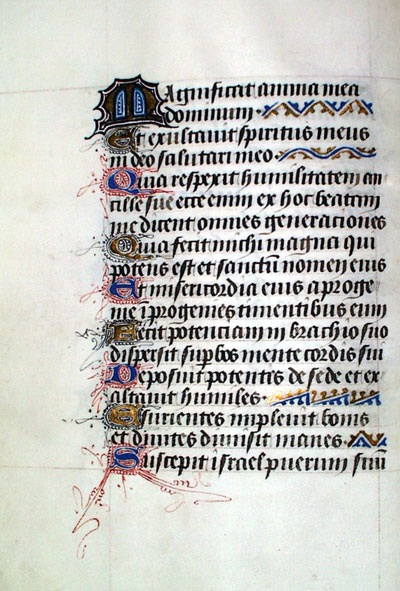 Magnificat anima mea
dominum
Et exultavit spiritus meus
in deo salutari meo
Quia respexit humilitatem an
cille sue ecce enim ex hoc beatam
me dicent omnes generationes
Quia fecit michi magna qui
potens est et sanctū nomen eius
Et misericordia eius a proge
nie ī progenies timentibus eum
Fecit potentiam in brachio suo
dispersit supbos mente cordis sui
Deposuit potentes de sede et ex
altavit humiles
Esurientes implevit bonis
et divites dimisit inanes
Suscepit israel puerum suū